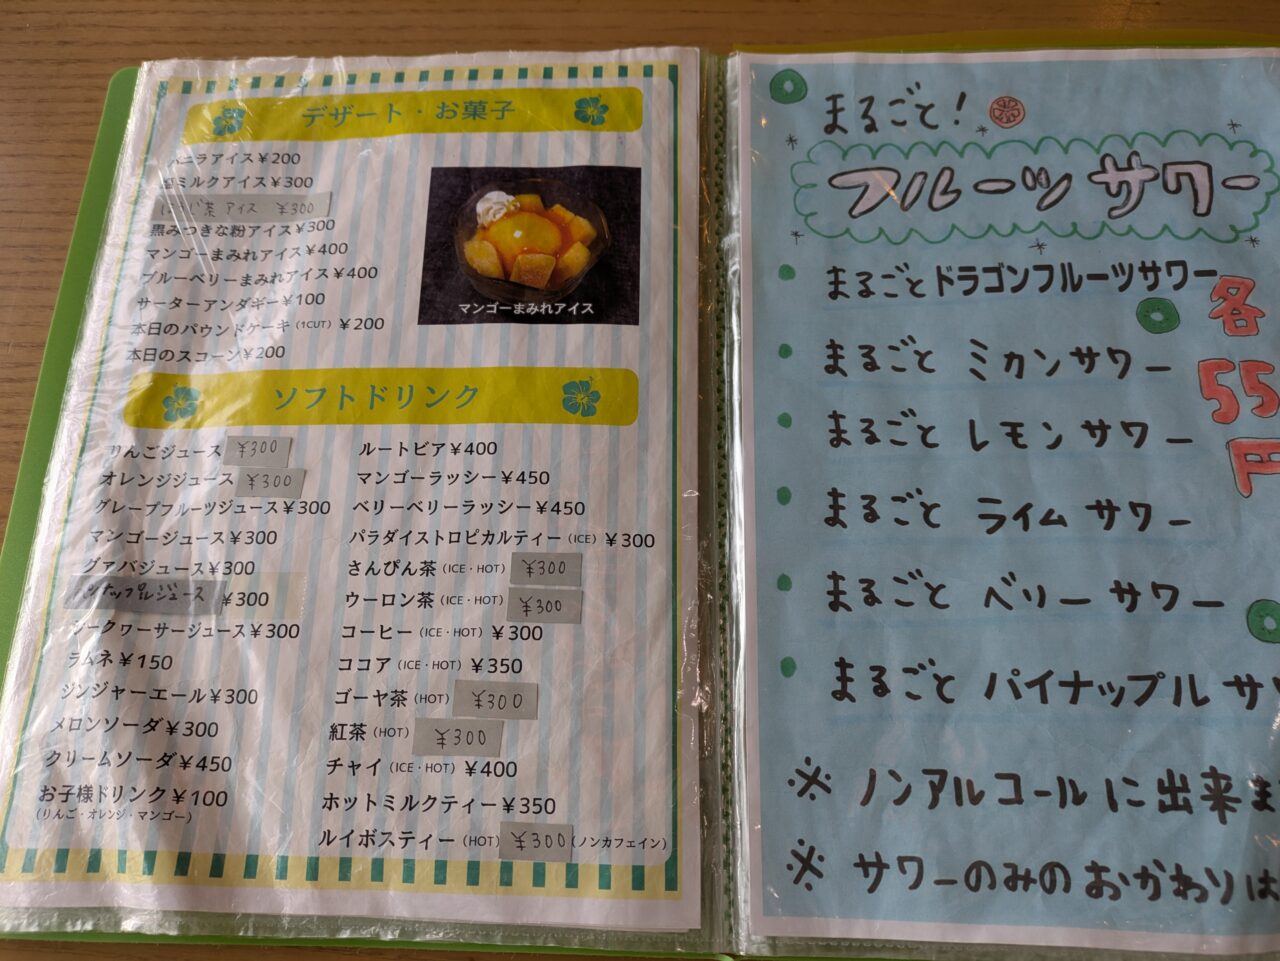 デザート・お菓子
バニラアイス¥200
塩ミルクアイス¥300
ほうじ茶アイス ¥300
黒みつきな粉アイス¥300
マンゴーまみれアイス¥400
ブルーベリーまみれアイス¥400
サーターアンダギー¥100
本日のパウンドケーキ(1CUT)¥200
本日のスコーン¥200
マンゴーまみれアイス
ソフトドリンク
りんごジュース ¥300
オレンジジュース ¥300
グレープフルーツジュース¥300
マンゴージュース¥300
グァバジュース¥300
パイナップルジュース ¥300
シークヮーサージュース¥300
ラムネ¥150
ジンジャーエール¥300
メロンソーダ¥300
クリームソーダ¥450
お子様ドリンク¥100
(りんご・オレンジ・マンゴー)
ルートビア¥400
マンゴーラッシー¥450
ベリーベリーラッシー¥450
パラダイストロピカルティー(ICE)¥300
さんぴん茶(ICE・HOT) ¥300
ウーロン茶(ICE・HOT) ¥300
コーヒー(ICE・HOT)¥300
ココア(ICE・HOT)¥350
ゴーヤ茶(HOT) ¥300
紅茶(HOT) ¥300
チャイ(ICE・HOT)¥400
ホットミルクティー¥350
ルイボスティー(HOT) ¥300(ノンカフェイン)
まるごと!
フルーツサワー
まるごとドラゴンフルーツサワー
まるごと ミカンサワー
まるごと レモンサワー
まるごと ライムサワー
まるごと ベリーサワー
まるごと パイナップルサ
各
55
円
※ ノンアルコールに出来ま
※ サワーのみのおかわりは